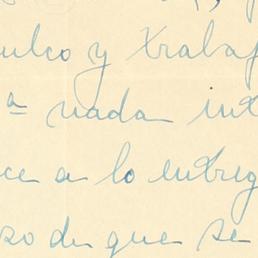 ulco y trabaj
ª nada int
ce a lo entreg
so de que se